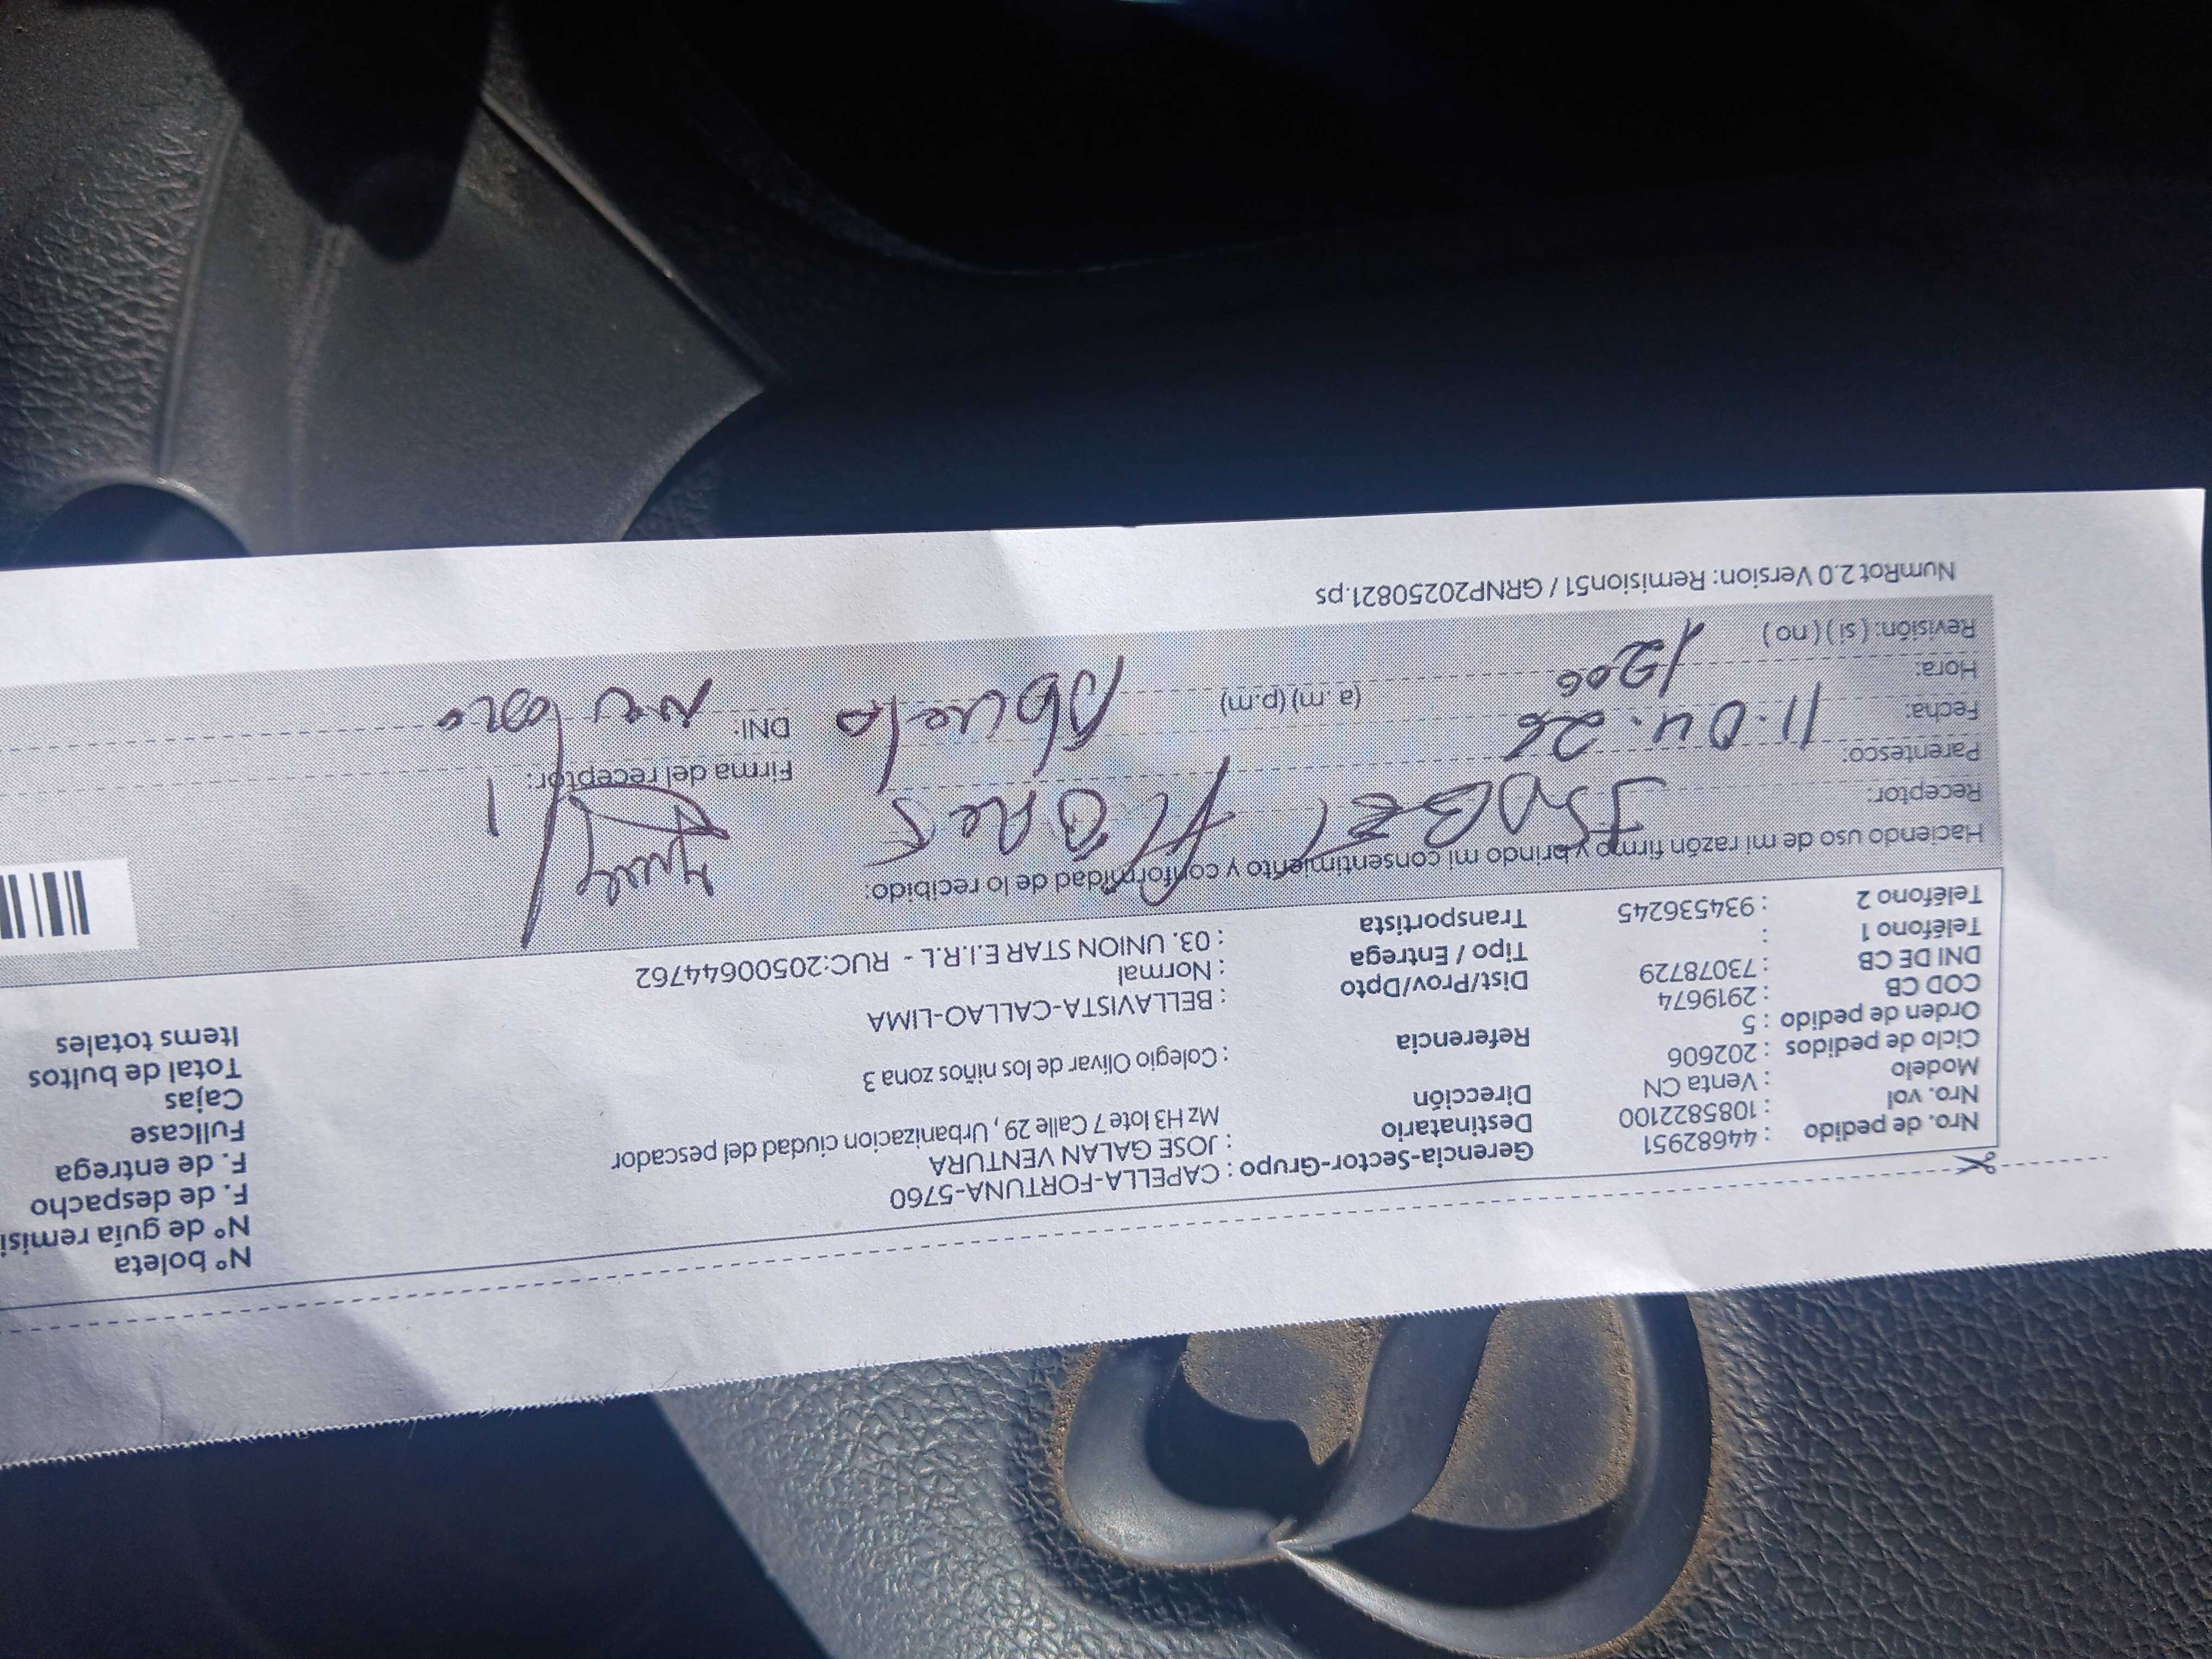 Nro. de pedido : 44682951
Nro. vol : 1085822100
Modelo : Venta CN
Ciclo de pedidos : 202606
Orden de pedido : 5
COD CB : 2919674
DNI DE CB : 73078729
Teléfono 1 :
Teléfono 2 : 934536245
Gerencia-Sector-Grupo : CAPELLA-FORTUNA-5760
Destinatario : JOSE GALAN VENTURA
Dirección Mz H3 lote 7 Calle 29, Urbanizacion ciudad del pescador
Referencia : Colegio Olivar de los niños zona 3
Dist/Prov/Dpto : BELLAVISTA-CALLAO-LIMA
Tipo / Entrega : Normal
Transportista : 03. UNION STAR E.I.R.L - RUC:20500644762
N° boleta
N° de guía remisi
F. de despacho
F. de entrega
Fullcase
Cajas
Total de bultos
Items totales
Haciendo uso de mi razón firmo y brindo mi consentimiento y conformidad de lo recibido:
Receptor: ISABEL FLORES
Parentesco: Abuela
Fecha: 11.04.26
Hora: 1206 (a. m) (p.m)
Revisión: ( si ) ( no )
Firma del receptor:
DNI:
NumRot 2.0 Version: Remision51 / GRNP20250821.ps